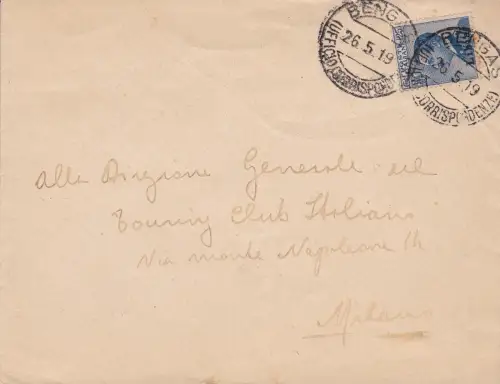 BENGASI
(UFFICIO CORRISPONDENZE)
26.5.19
BENGASI
26.5.19
(CORRISPONDENZE)
alla Direzione Generale del
Touring Club Italiano
Via monte Napoleone 14
Milano